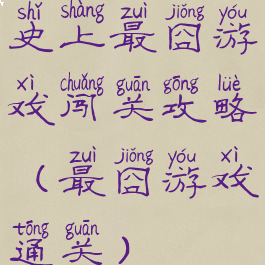 shǐ shàng zuì jiǒng yóu
史上最囧游
xì chuǎng guān gōng lüè
戏闯关攻略
zuì jiǒng yóu xì
（最囧游戏
tōng guān
通关）